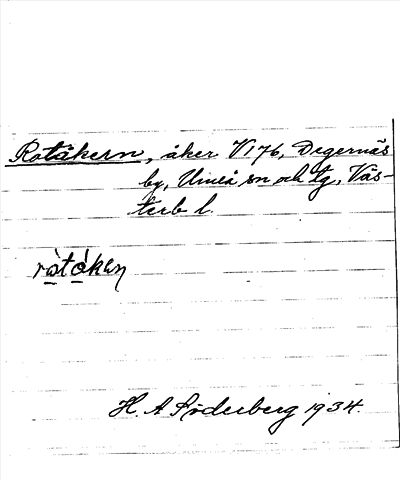 Rotåkern, åker V176, Degernäs
by, Umeå sn och tg, Väs-
terb l.
ròtåkɘɳ
H. A Söderberg 1934.